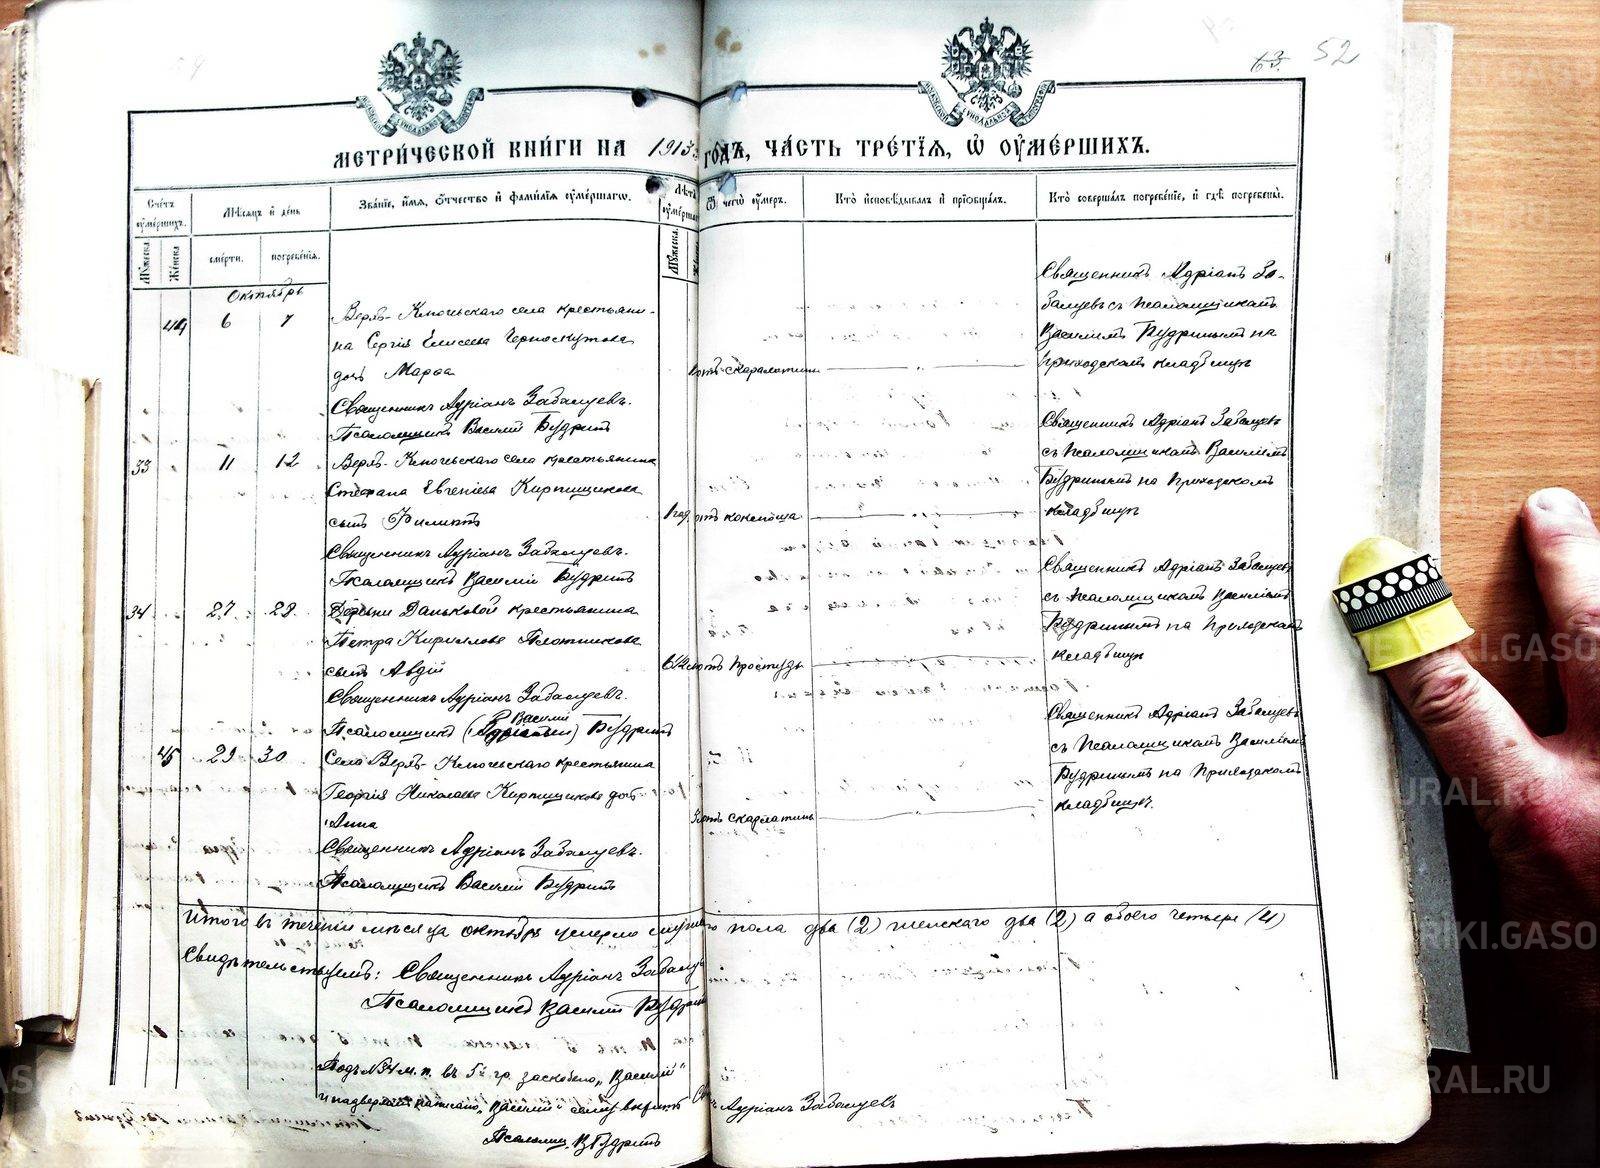 63. 52
МЕТРИЧЕСКОЙ КНИГИ НА 1913 ГОДЪ, ЧАСТЬ ТРЕТІЯ, Ѡ ОУМЕРШИХЪ.
Счетъ оумершихъ.
Мѣсяцъ и день
Званіе, имя, отчество и фамилія оумершагѡ.
Лѣта оумершаго
Ѿ чегѡ оумеръ.
Кто исповѣдывалъ и пріобщалъ.
Кто совершалъ погребеніе, и гдѣ погребены.
Мужеска.
Женска
смерти.
погребенія.
Мужеска.
Октябрь
44 6 7
Верхъ-Ключевскаго села крестьяни-
на Сергія Елисеева Черноскутова
дочь Марѳа
отъ скарлатины
Священникъ Адріанъ За-
балуевъ съ псаломщикомъ
Василіемъ Будринымъ на
приходскомъ кладбищѣ
Священникъ Адріанъ Забалуевъ.
Псаломщикъ Василій Будринъ
33 11 12
Верхъ-Ключевскаго села крестьянина
Степана Евгеніева Кирпищикова
сынъ Филиппъ
1 год. отъ коклюша
Священникъ Адріанъ Забалуевъ
съ псаломщикомъ Василіемъ
Будринымъ на приходскомъ
кладбищѣ
Священникъ Адріанъ Забалуевъ.
Псаломщикъ Василій Будринъ
34 27 28
Деревни Даньковой крестьянина
Петра Кириллова Плотникова
сынъ Авдій
отъ простуды
Священникъ Адріанъ Забалуевъ
съ псаломщикомъ Василіемъ
Будринымъ на приходскомъ
кладбищѣ
Священникъ Адріанъ Забалуевъ.
Василій
Псаломщикъ Будринъ
45 29 30
Села Верхъ-Ключевскаго крестьянина
Георгія Николаева Кирпищикова дочь
Анна
отъ скарлатины
Священникъ Адріанъ Забалуевъ
съ псаломщикомъ Василіемъ
Будринымъ на приходскомъ
кладбищѣ.
Священникъ Адріанъ Забалуевъ.
Псаломщикъ Василій Будринъ
Итого въ теченіи мѣсяца октября умерло мужскаго пола два (2) женскаго два (2) а обоего четыре (4)
Свидѣтельствуемъ: Священникъ Адріанъ Забалуевъ
Псаломщикъ Василій Будринъ
Подъ №34 м. п. въ 5й гр. заскоблено „Василій"
и надверху написано „Василій" сему вѣрить
Адріанъ Забалуевъ
Псаломщ. В Будринъ
METRIKI.GASO
URAL.RU